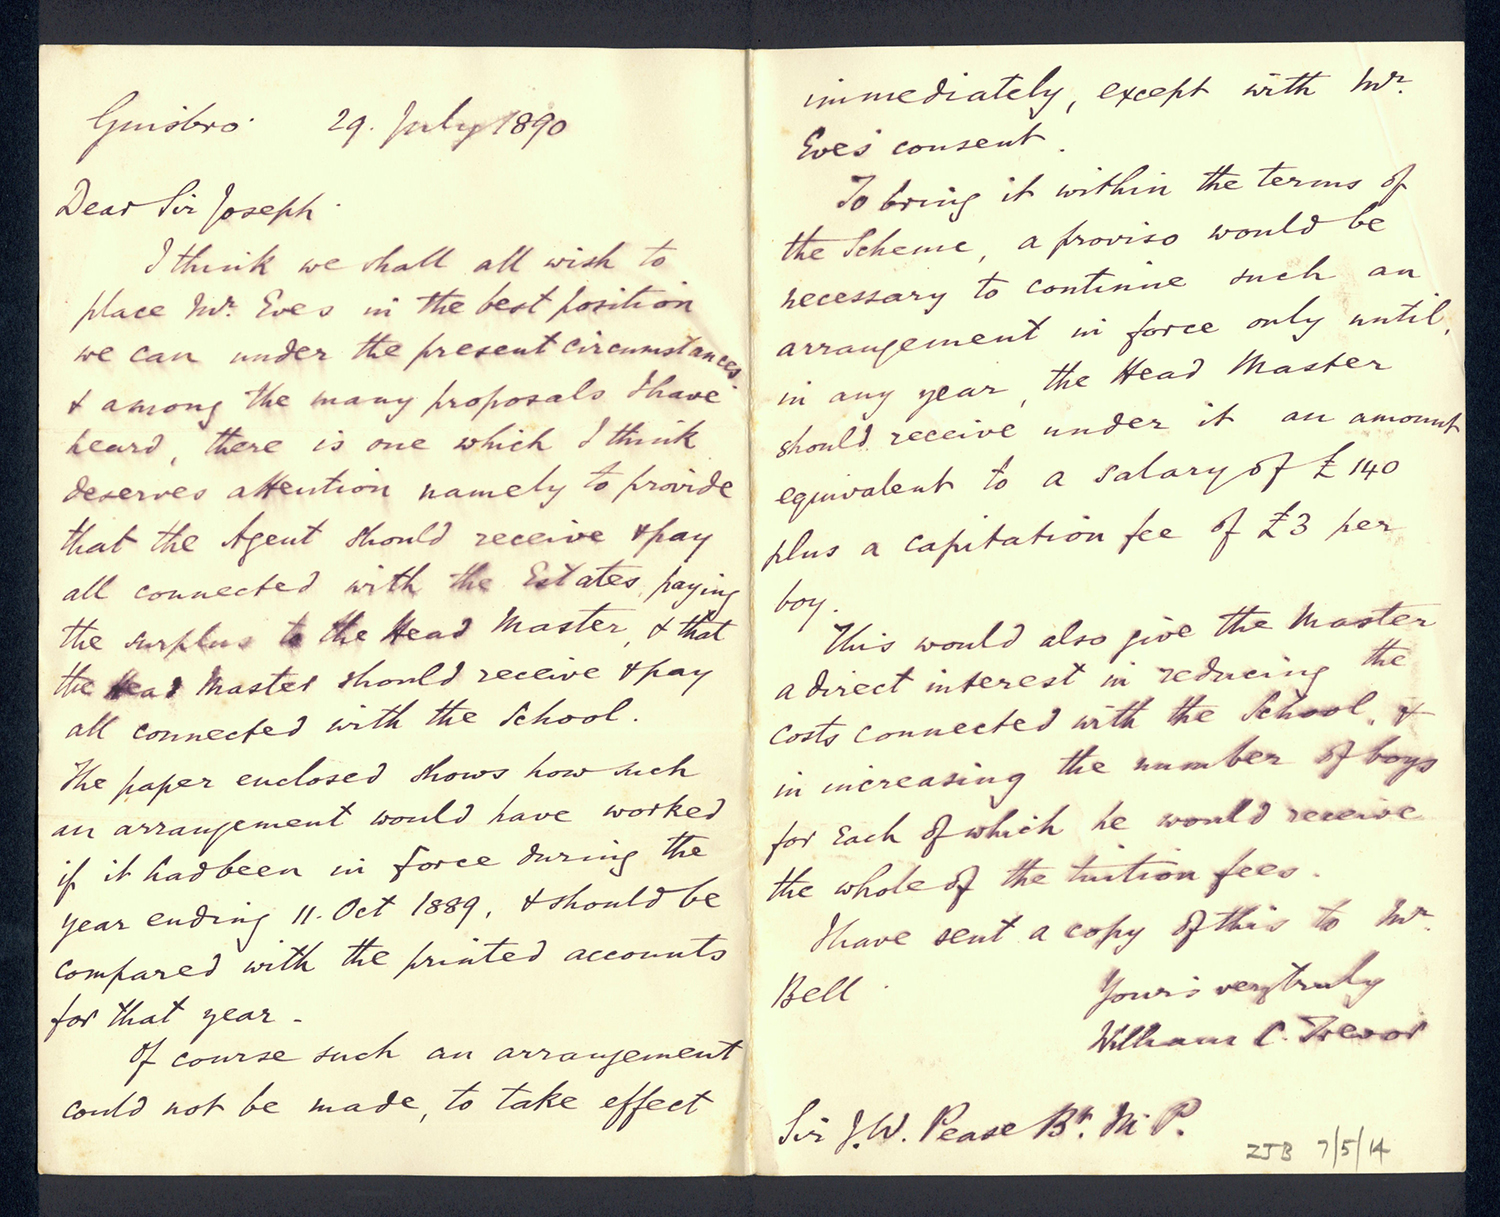 Guisbro' 29. July 1890
Dear Sir Joseph.
I think we shall all wish to
place Mr. Eves in the best position
we can under the present circumstances.
& among the many proposals I have
heard, there is one which I think
deserves attention namely to provide
that the Agent should receive & pay
all connected with the Estates, paying
the surplus to the Head Master, & that
the Head Master should receive & pay
all connected with the School.
The paper enclosed shows how such
an arrangement would have worked
if it had been in force during the
year ending 11. Oct 1889, & should be
compared with the printed accounts
for that year -
Of course such an arrangement
could not be made, to take effect
immediately, except with Mr.
Eves' consent.
To bring it within the terms of
the Scheme, a proviso would be
necessary to continue such an
arrangement in force only until,
in any year, the Head Master
should receive under it an amount
equivalent to a salary of £140
plus a capitation fee of £3 per
boy.
This would also give the Master
a direct interest in reducing the
costs connected with the School, &
in increasing the number of boys
for each of which he would receive
the whole of the tuition fees.
I have sent a copy of this to Mr.
Bell.
Yours very truly
William C. Trevor
Sir J. W. Pease Bt. M.P.
ZJB 7/5/14